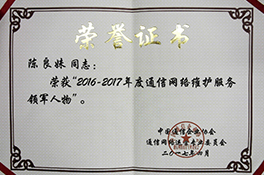 荣誉证书
陈良妹 同志:
荣获“2016-2017年度通信网络维护服务
领军人物”。
中国通信企业协会
通信网络运营专业委员会
二〇一七年四月